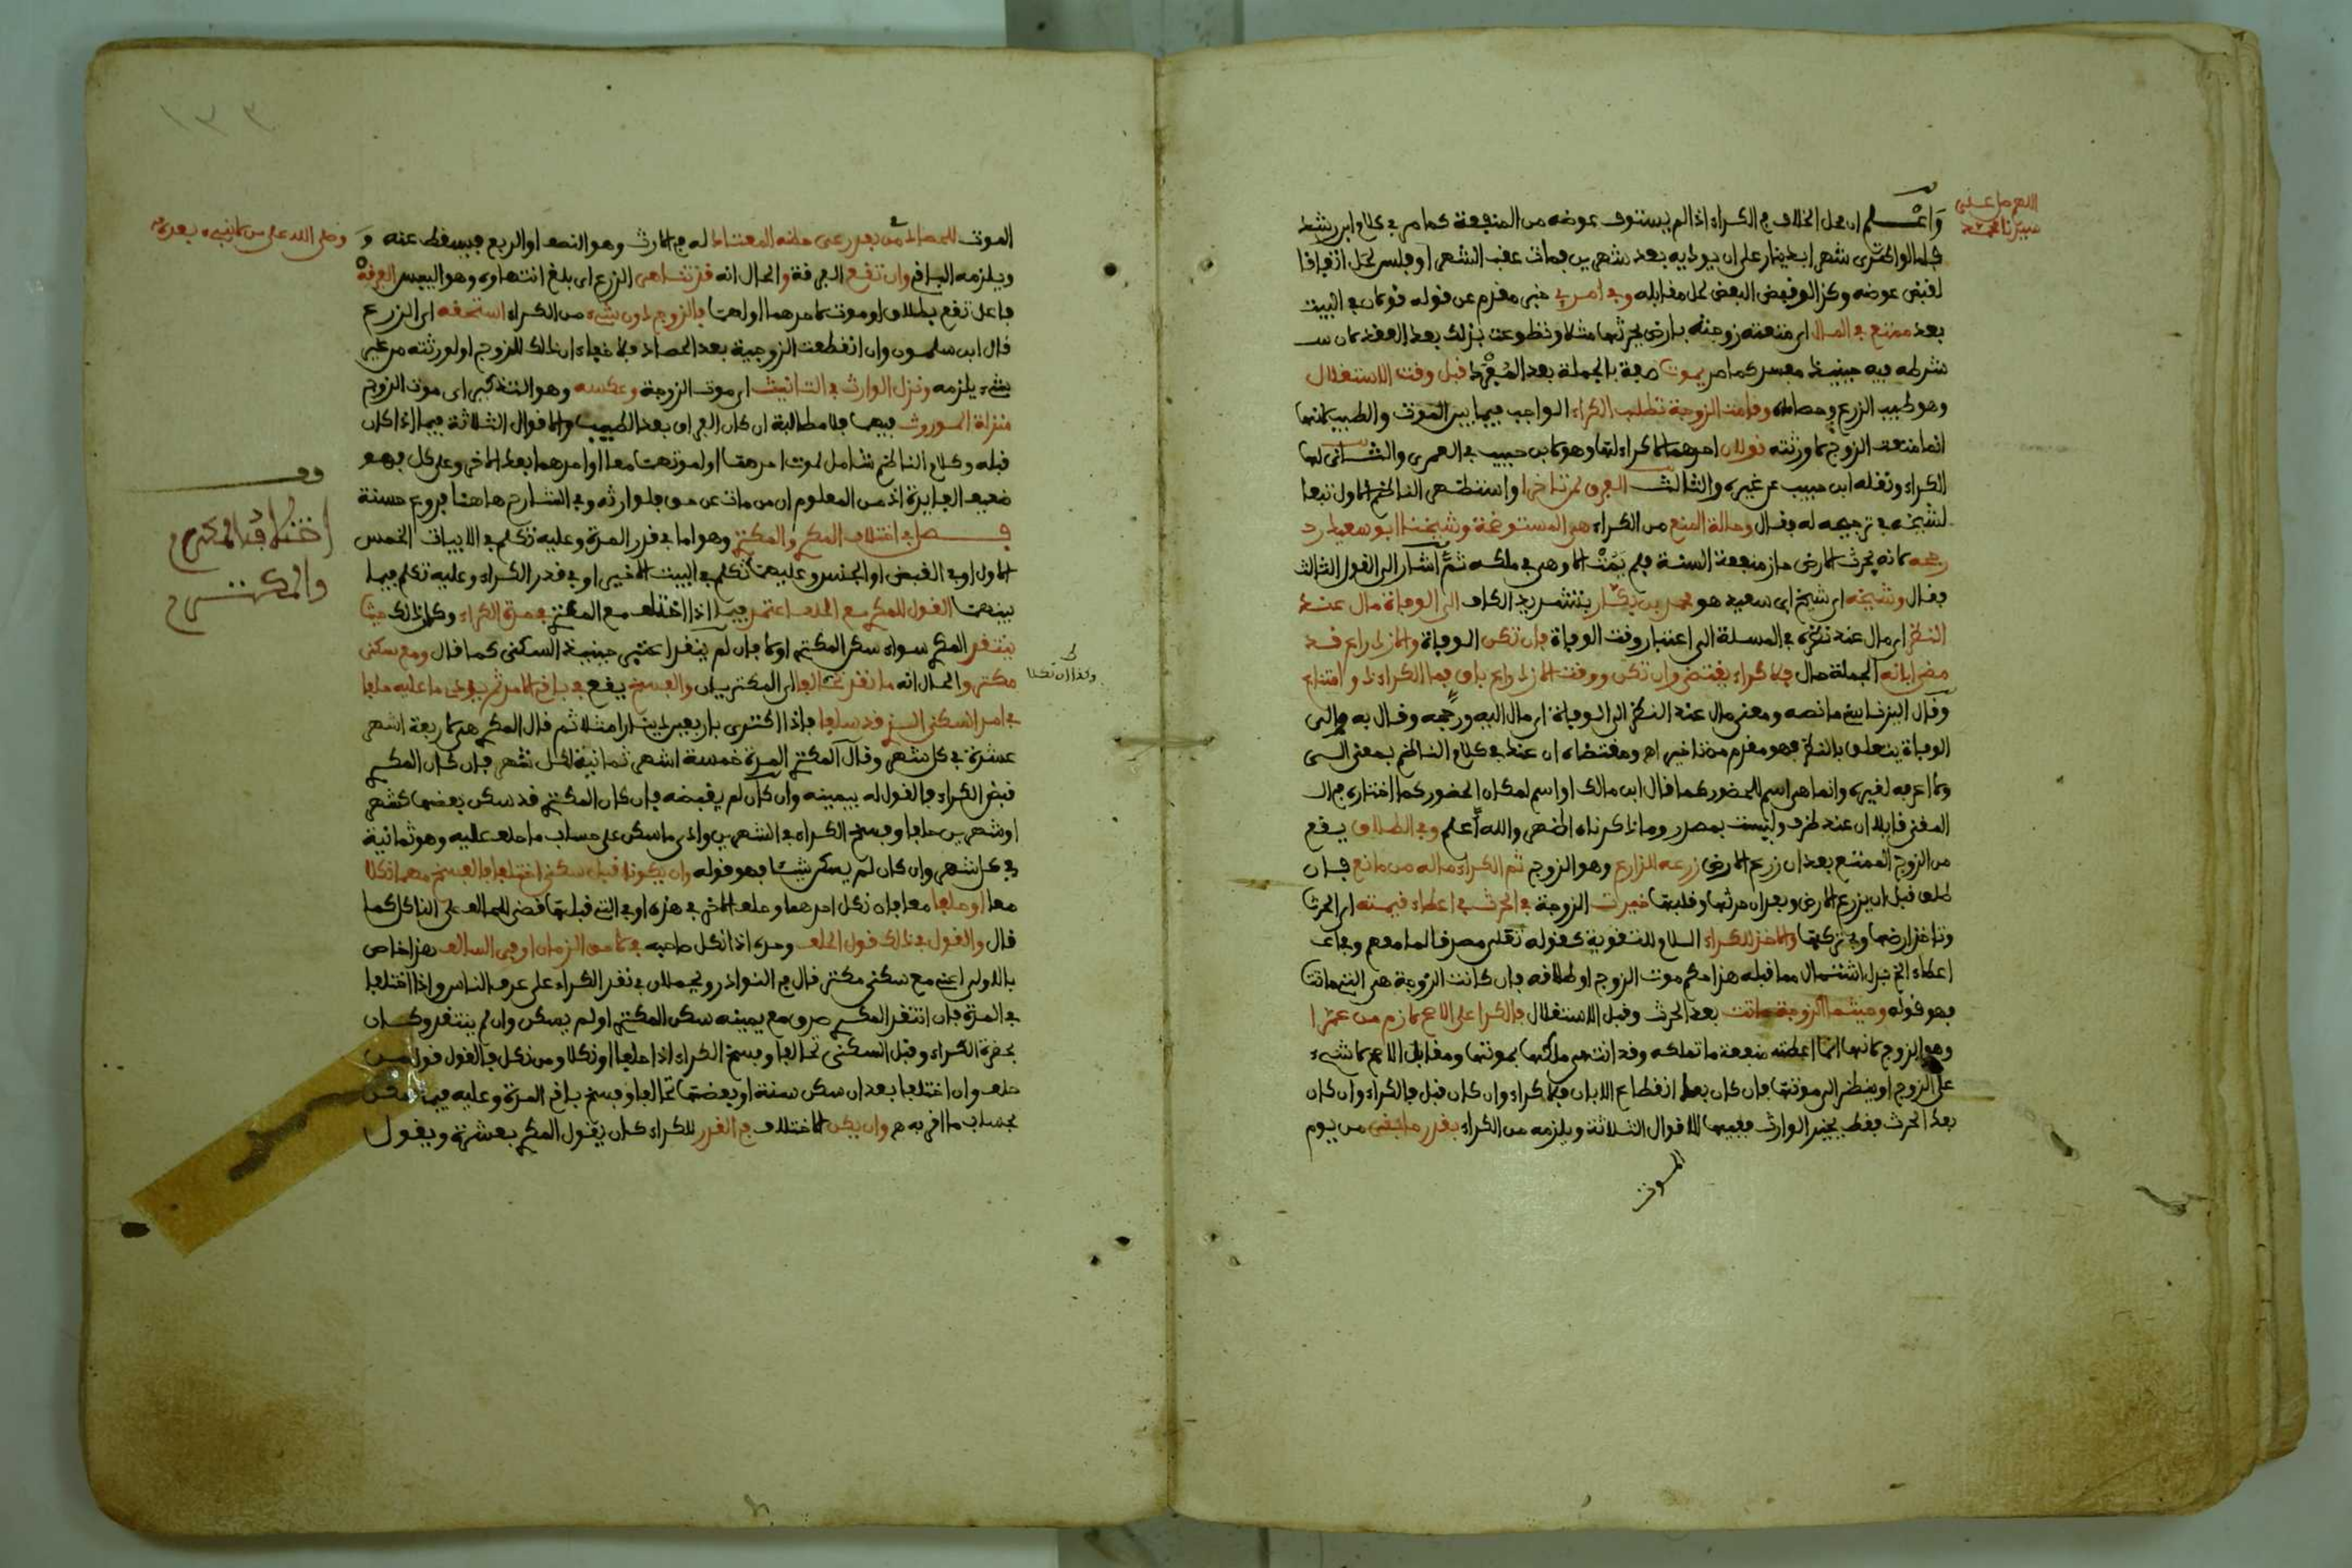 اللهم صل على
سيدنا محمد
واعلم ان محل الخلاف في الكراء اذا لم يستوف عوضه من المنفعة كما مر في كلام ابن رشد
شهرا بدينار على ان يوديه بعد شهرين فمات عقب الشهر او فلس لحل
لقبض عوضه وكذا لو قبض البعض لحل مقابله وفي امر خبر مقدم عن قوله قولان في البيت
بعد ممتع في المال اي متعته زوجته بارض يحرثها مثلا وتطوعت بذلك بعد العقد لان
شرطه فيه حينيذ مفسد كما مر يموت صفة بالجملة بعد المفرد قبل وقت الاستغلال
وهو طيب الزرع وحصاده وقامت الزوجة تطلب الكراء الواجب فيما بين الموت والطيب لانها
انما متعت الزوج لا ورثته قولان احدهما لا كراء لها وهو لابن حبيب في العمرى والثاني لها
الكراء ونقله ابن حبيب عن غيره والثالث الفرق واستظهر الناظم الاول تبعا
لشيخه في ترجيحه له فقال وحالة المنع من الكراء هي المستوضحة وشيخنا ابو سعيد
رجحه لانه يحرث الارض حاز منفعة السنة فلم يمت الا وهي في ملكه ثم اشار الى القول الثالث
فقال وشيخه اي شيخ ابي سعيد هو محمد بن بكار بتشديد الكاف الى الوفاة مال عند
النظر اي مال عند نظره في المسلة الى اعتبار وقت الوفاة فان تكن الوفاة والازدراع قد
مضى ابانه الجملة حال فلا كراء يقتضى وان تكن ووقت الازدراع باق فما الكراء ذو امتناع
وقال اليزناسني ما نصه ومعنى مال عند النظر الى الوفاة اي مال اليه ورجحه وقال به والى
الوفاة يتعلق بالنظر فهو مقدم من تاخير اهـ ومقتضاه ان عند في كلام الناظم بمعنى الى
ولا اعرفه لغيره وانما هي اسم للحضور كما قال ابن مالك او اسم لمكان الحضور كما اختاره في
المغني قايلا ان عند ظرف وليست بمصدر وما ذكرناه اظهر والله اعلم وفي الطلاق يقع
من الزوج الممتع بعد ان زرع الارض زرعه للزارع وهو الزوج ثم الكراء ما له من مانع فان
طلق قبل ان يزرع الارض وبعد ان حرثها وقلبها خيرت الزوجة في الحرث في اعطاء قيمته اي الحرث
وتاخذ ارضها وفي تركها والاخذ للكراء اللام للتقوية كقوله تعلى مصدقا لما معهم وفاعل
اعطاء الخ بدل اشتمال مما قبله هذا حكم موت الزوج او طلاقه فان كانت الزوجة هي التي ماتت
فهو قوله وحيثما الزوجة ماتت بعد الحرث وقبل الاستغلال فالكرا على الاصح لازم من عمرا
وهو الزوج لانها انما اعطته منفعة ما تملكه وقد انتهى ملكها بموتها ومقابل الاصح لا شيء
على الزوج او ينظر الى موتها فان كان بعد انقطاع الابان فلا كراء وان كان قبل فالكراء وان كان
بعد الحرث فقط يخير الوارث ففيها الاقوال الثلاثة ويلزمه من الكراء بقدر ما بقي من يوم
الموت
الموت للحصاد من بعد رعي حظه المعتاد له في الارث وهو النصف او الربع فيسقط عنه و
وصلى الله على من لا نبيء بعده
ويلزمه الباقي وان تقع الفرقة والحال انه قد تناهى الزرع اي بلغ انتهاءه وهو اليبس الفرقة
فاعل تقع بطلاق او موت لاحدهما او لهما فالزوج دون شيء من الكراء استحقه اي الزرع
قال ابن سلمون وان انقطعت الزوجية بعد الحصاد فلا خفاء ان ذلك للزوج او لورثته من غير
شيء يلزمه ونزل الوارث في التانيث اي موت الزوجة وعكسه وهو التذكير اي موت الزوج
منزلة الموروث فيها فلا مطالبة ان كان الفراق بعد الطيب والاقوال الثلاثة فيما اذا كان
قبله وكلام الناظم شامل لموت احدهما او لموتهما معا او احدهما بعد الاخر وعلى كل فهو
ضعيف الفايدة اذ من المعلوم ان من مات عن حق فلوارثه وفي الشارح هاهنا فروع حسنة
فصل في اختلاف المكري والمكتري وهو اما في قدر المدة وعليه تكلم في الابيات الخمس
الاول او في القبض او الجنس وعليهما تكلم في البيت الاخير او في قدر الكراء وعليه تكلم فيما
بينهما القول للمكري مع الحلف اعتمد فيما اذا اختلف مع المكتري في مدة الكراء وكان ذلك حيثما
ينتقد المكري سواء سكن المكتري او لا فان لم ينقد اعتبر حينيذ السكنى كما قال ومع سكنى
مكتر والحال انه ما نقد تحالفا اي المكتريان والفسخ يقع في باقي الامد ثم يودى ما عليه حلفا
في امد السكنى الذي قد سلفا فاذا اكترى باربعين دينارا مثلا ثم قال المكري هي لاربعة اشهر
عشرة في كل شهر وقال المكتري المدة خمسة اشهر ثمانية لكل شهر فان كان المكري
قبض الكراء فالقول له بيمينه وان كان لم يقبضه فان كان المكتري قد سكن بعضها كشهر
او شهرين حلفا وفسخ الكراء في الشهرين وادى ما سكن على حساب ما حلف عليه وهو ثمانية
في كل شهر وان كان لم يسكن شيئا فهو قوله وان يكونا قبل سكنى اختلفا فالفسخ مهما نكلا
معا او حلفا معا فان نكل احدهما وحلف الاخر في هذه او في التي قبلها قضي للحالف على الناكل كما
قال والقول في ذلك قول الحالف وحده اذا نكل صاحبه في لاحق الزمان او في السالف هذا خاص
بالاولى اعني مع سكنى مكتر قال في النوادر ويحملان في نقد الكراء على عرف الناس واذا اختلفا
في المدة فان انتقد المكري صدق مع يمينه سكن المكتري او لم يسكن وان لم ينتقد وكان
بحضرة الكراء وقبل السكنى تحالفا وفسخ الكراء اذا حلفا او نكلا ومن نكل فالقول قول من
حلف وان اختلفا بعد ان سكن سنة او بعضها تحالفا وفسخ باقي المدة وعليه فيما سكن
بحساب ما اقر به وان يكن الاختلاف في القدر للكراء كان يقول المكري بعشرة ويقول
وقف
اختلاف المكري
والمكتري